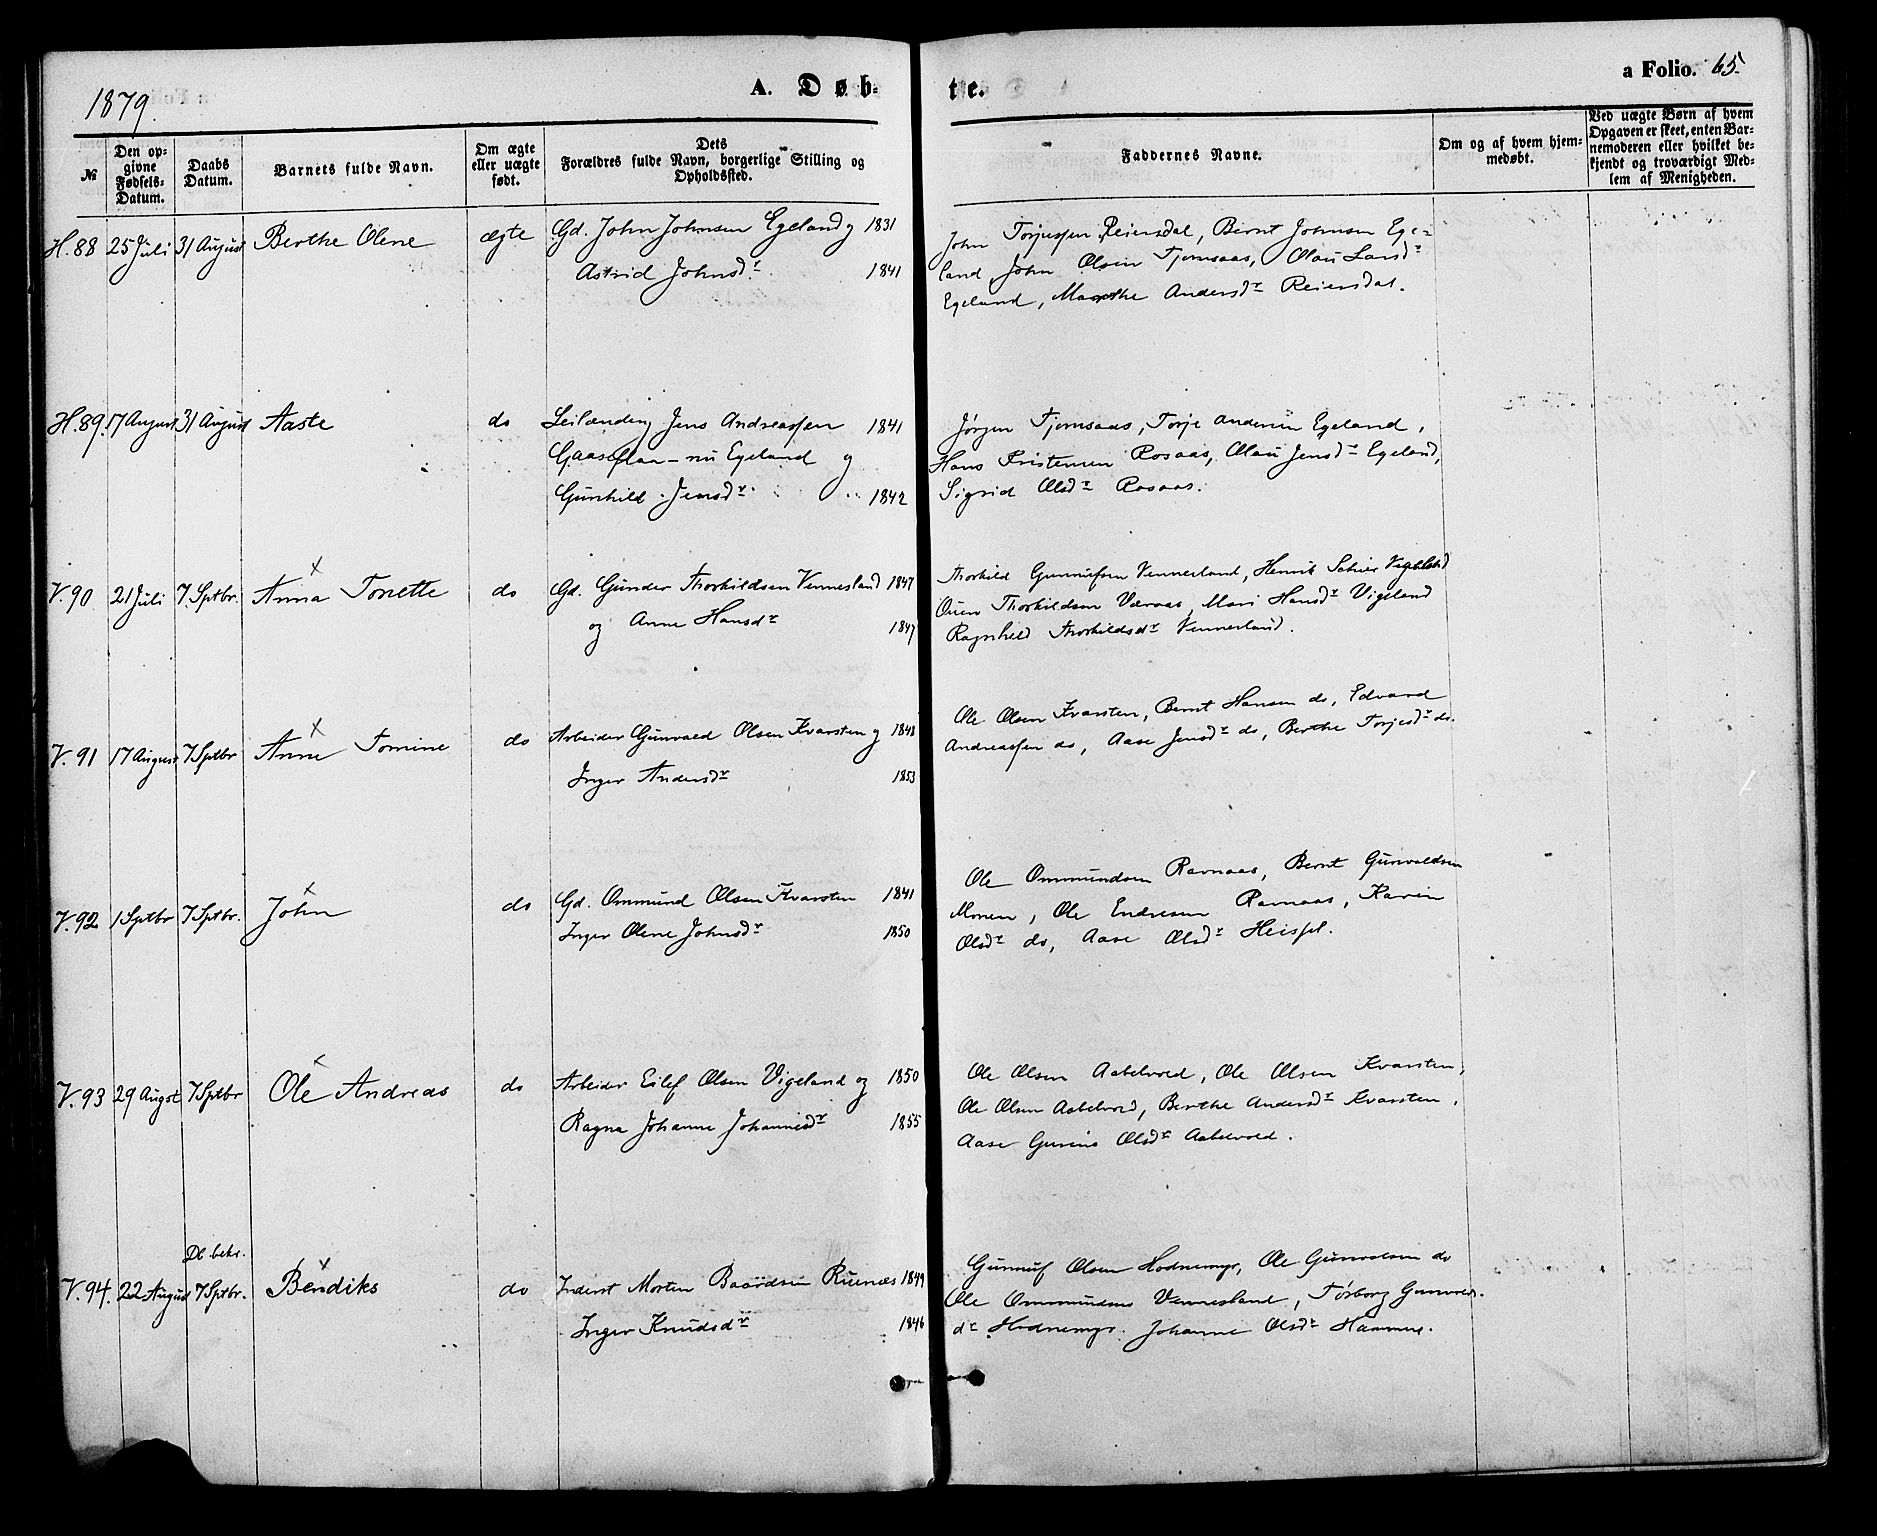 1879.
A. Døb-
te.
a Folio. 65.
№
Den op-
givne
Fødsels-
Datum.
Daabs
Datum.
Barnets fulde Navn.
Om ægte
eller uægte
født.
Dets
Forældres fulde Navn, borgerlige Stilling og
Opholdssted.
Faddernes Navne.
Om og af hvem hjem-
medøbt.
Ved uægte Børn af hvem
Opgaven er skeet, enten Bar-
nemoderen eller hvilket be-
kjendt og troværdigt Med-
lem af Menigheden.
H. 88 25 Juli 31 August Berthe Olene ægte Gd. John Johnsen Egeland og 1831
Astrid Johnsdr. 1841
John Torjussen Reiersdal, Bernt Johnsen Ege-
land, John Olsen Tjomsaas, Olau Larsdr
Egeland, Marthe Andersdr Reiersdal.
H. 89. 17 August 31 August Aaste do Leilænding Jens Andreassen 1841
Gaaseflaa - nu Egeland og
Gunhild Jensdr. 1842
Jørgen Tjomsaas, Torje Andersen Egeland,
Hans Kristensen Rosaas, Olau Jensdr Egeland,
Sigrid Olsdr Rosaas.
V. 90 21 Juli 7. Sptbr. Anna Tonette do Gd. Gunder Thorkildsen Vennesland 1847
og Anne Hansdr 1847
Thorkild Gunnufsen Vennesland, Henrik Vigeland
Ouen Thorkildsen Væraas, Mari Hansdr Vigeland
Ragnhild Thorkildsdr Vennesland.
V. 91 17 August 7 Sptbr Anne Tomine do Arbeider Gunvald Olsen Kvarsten og 1848
Inger Andersdr 1853
Ole Olsen Kvarsten, Bernt Hansen do, Edvard
Andreassen do, Aase Jensdr do, Berthe Torjesdr do.
V. 92 1 Sptbr 7 Sptbr. John do Gd. Ommund Olsen Kvarsten 1841
Inger Olene Johnsdr 1850
Ole Ommundsen Ravnaas, Bernt Gunvaldsen
Monen, Ole Endresen Ravnaas, Karen
Olsdr do, Aase Olsdr Heispel.
V. 93 29 August 7 Sptbr Ole Andreas do Arbeider Eilef Olsen Vigeland og 1850
Ragna Johanne Johannesdr 1855
Ole Olsen Aabelvold, Ole Olsen Kvarsten,
Ole Olsen Aabelvold, Berthe Andersdr Kvarsten,
Aase Gurine Olsdr Aabelvold.
Db. bekr.
V. 94. 22 August 7 Sptbr. Bendiks do Inderst Morten Baardsen Ruenæs 1849
Inger Knudsdr 1846
Gunnuf Olsen Hodnemyr, Ole Gunvalsen do
Ole Ommundsen Vennesland, Torborg Gunvals-
dr Hodnemyr. Johanne Olsdr Hamme.